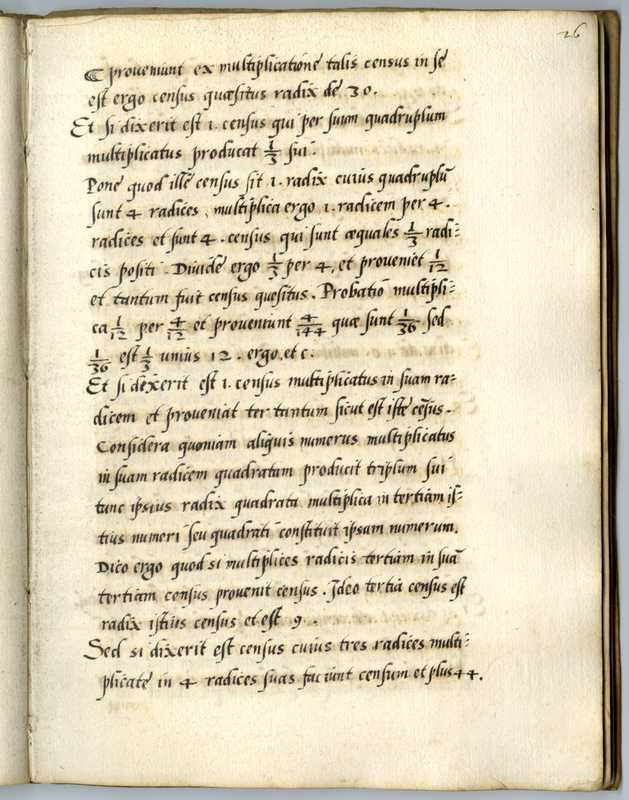 26
℃ proveniunt ex multiplicatione talis census in se
est ergo census quæsitus radix de 30.
Et si dixerit est 1. census qui per suum quadruplum
multiplicatus producat 1/3 sui.
Pone quod ille census sit 1. radix cuius quadruplū
sunt 4 radices, multiplica ergo 1. radicem per 4.
radices et sunt 4. census qui sunt æquales 1/3 radi:
cis positi. Divide ergo 1/3 per 4, et proveniet 1/12
et tantum fuit census quesitus. Probatio multipli:
ca 1/12 per 4/12 et proveniunt 4/144 quæ sunt 1/36 sed
1/36 est 1/3 unius 12. ergo, et c.
Et si dexerit est 1. census multiplicatus in suam ra:
dicem et proveniat ter tantum sicut est iste cēsus.
Considera quoniam aliquis numerus multiplicatus
in suam radicem quadratam producit triplum sui
tunc ipsius radix quadrata multiplica in tertiam is:
tius numeri seu quadrati constituit ipsum numerum.
Dico ergo quod si multiplices radicis tertiam in suā
tertiam census provenit census. Ideo tertia census est
radix istius census et est 9.
Sed si dixerit est census cuius tres radices multi:
plicate in 4 radices suas faciunt censum et plus 44.